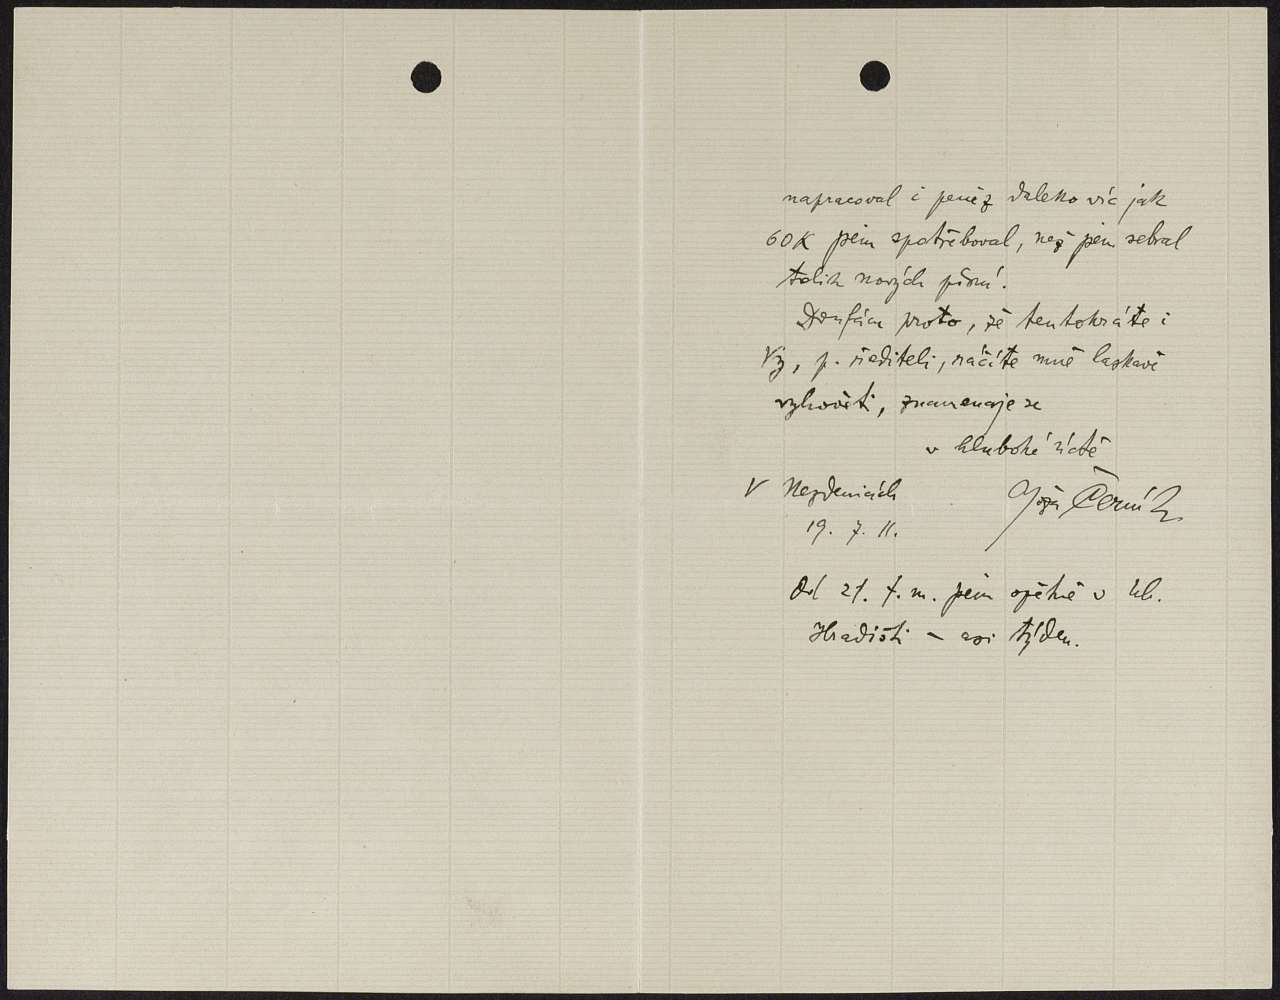 napracoval i peněz daleko víc jak
60K jsem spotřeboval, než jsem sebral
tolik nových písní.
Doufám proto, že tentokráte i
Vy, p. řediteli, ráčíte mně laskavě
vyhověti, znamenaje se
v hluboké úctě
V Nezdenicích Joža Černík
19. 7. 11.
Od 21. t. m. jsem opětně v Uh.
Hradišti – asi týden.